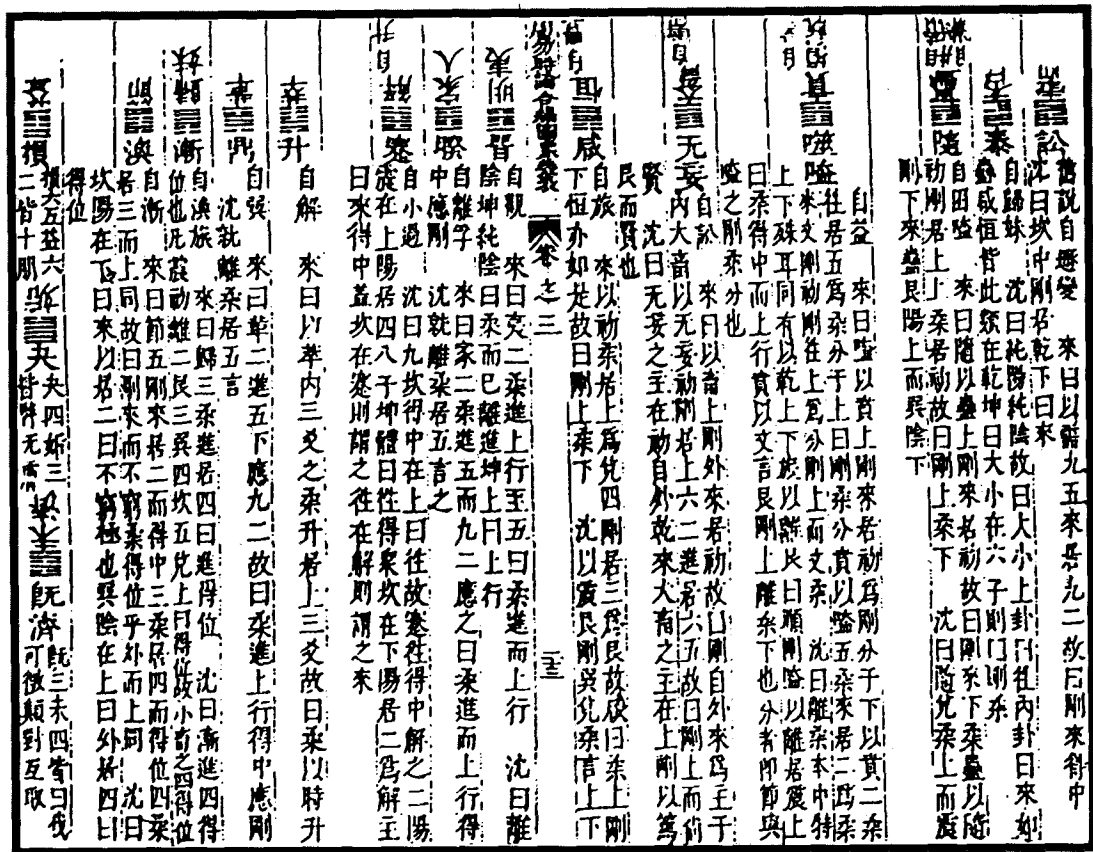 需 訟 舊說自遯變 來曰以需九五來居九二故曰剛來得中
沈曰坎中剛居乾下曰來
否 泰 自歸妹 沈曰純陽純陰故曰大小上卦曰往內卦曰來如
蠱咸恒皆此類在乾坤曰大小在六子則曰剛柔
蠱 隨 自困噬 來曰隨以蠱上剛來居初故曰剛來下柔蠱以隨
初剛居上上柔居初故曰剛上柔下 沈曰隨兌柔上而震
剛下來蠱艮陽上而巽陰下
賁 噬嗑 自益 來曰噬以賁上剛來居初為剛分于下以賁二柔
往居五為柔分于上曰剛柔分賁以噬五柔來居二為柔
來文剛初剛往上為分剛上而文柔 沈曰離柔本中特
上下殊耳同有以乾上下旅以離艮曰順剛噬以離居震上
曰柔得中而上行賁以文言艮剛上離柔下也分者即節與
嗑之剛柔分也
大畜 无妄 自訟 來曰以畜上剛外來居初故曰剛自外來為主于
內大畜以无妄初剛居上六二進居六五故曰剛上而尚
賢 沈曰无妄之主在初自外乾來大畜之主在上剛以篤
艮而賢也
恒 咸 自旅 來以初柔居上為兌四剛居三為艮故咸曰柔上剛
下恒亦如是故曰剛上柔下 沈以震艮剛巽兌柔言上下
周易時論合編圖象幾表 卷之三 三
明夷 晉 自觀 來曰 二柔進上行至五曰柔進而上行 沈曰離
陰坤純陰曰柔而已離進坤上曰上行
家人 睽 自離孚 來曰家二柔進五而九二應之曰柔進而上行得
中應剛 沈就離柔居五言之
解 蹇 自小過 沈曰九坎得中在上曰往故蹇往得中解之二陽
震在上陽居四入于坤體曰往得眾坎在下陽居二為解主
曰來得中蓋坎在蹇則謂之往在解則謂之來
萃 升 自解 來曰以萃內三爻之柔升居上三爻故曰柔以時升
革 鼎 自巽 來曰革二進五下應九二故曰柔進上行得中應剛
沈就離柔居五言
歸妹 漸 自渙旅 來曰歸三柔進居四曰進得位 沈曰漸進四得
位也
節 渙 自漸 來曰節五剛來居二而得中三柔居四而得位四柔
居三而上同故曰剛來而不窮柔得位乎外而上同 沈曰
坎陽在下曰來以居二曰不窮極也巽陰在上曰外居四曰
得位
益 損 損夬互益六 姤 夬 夬四姤三 未濟 既濟 既三未四皆曰伐
二皆十朋 皆臀无膚 可徵顛對互取